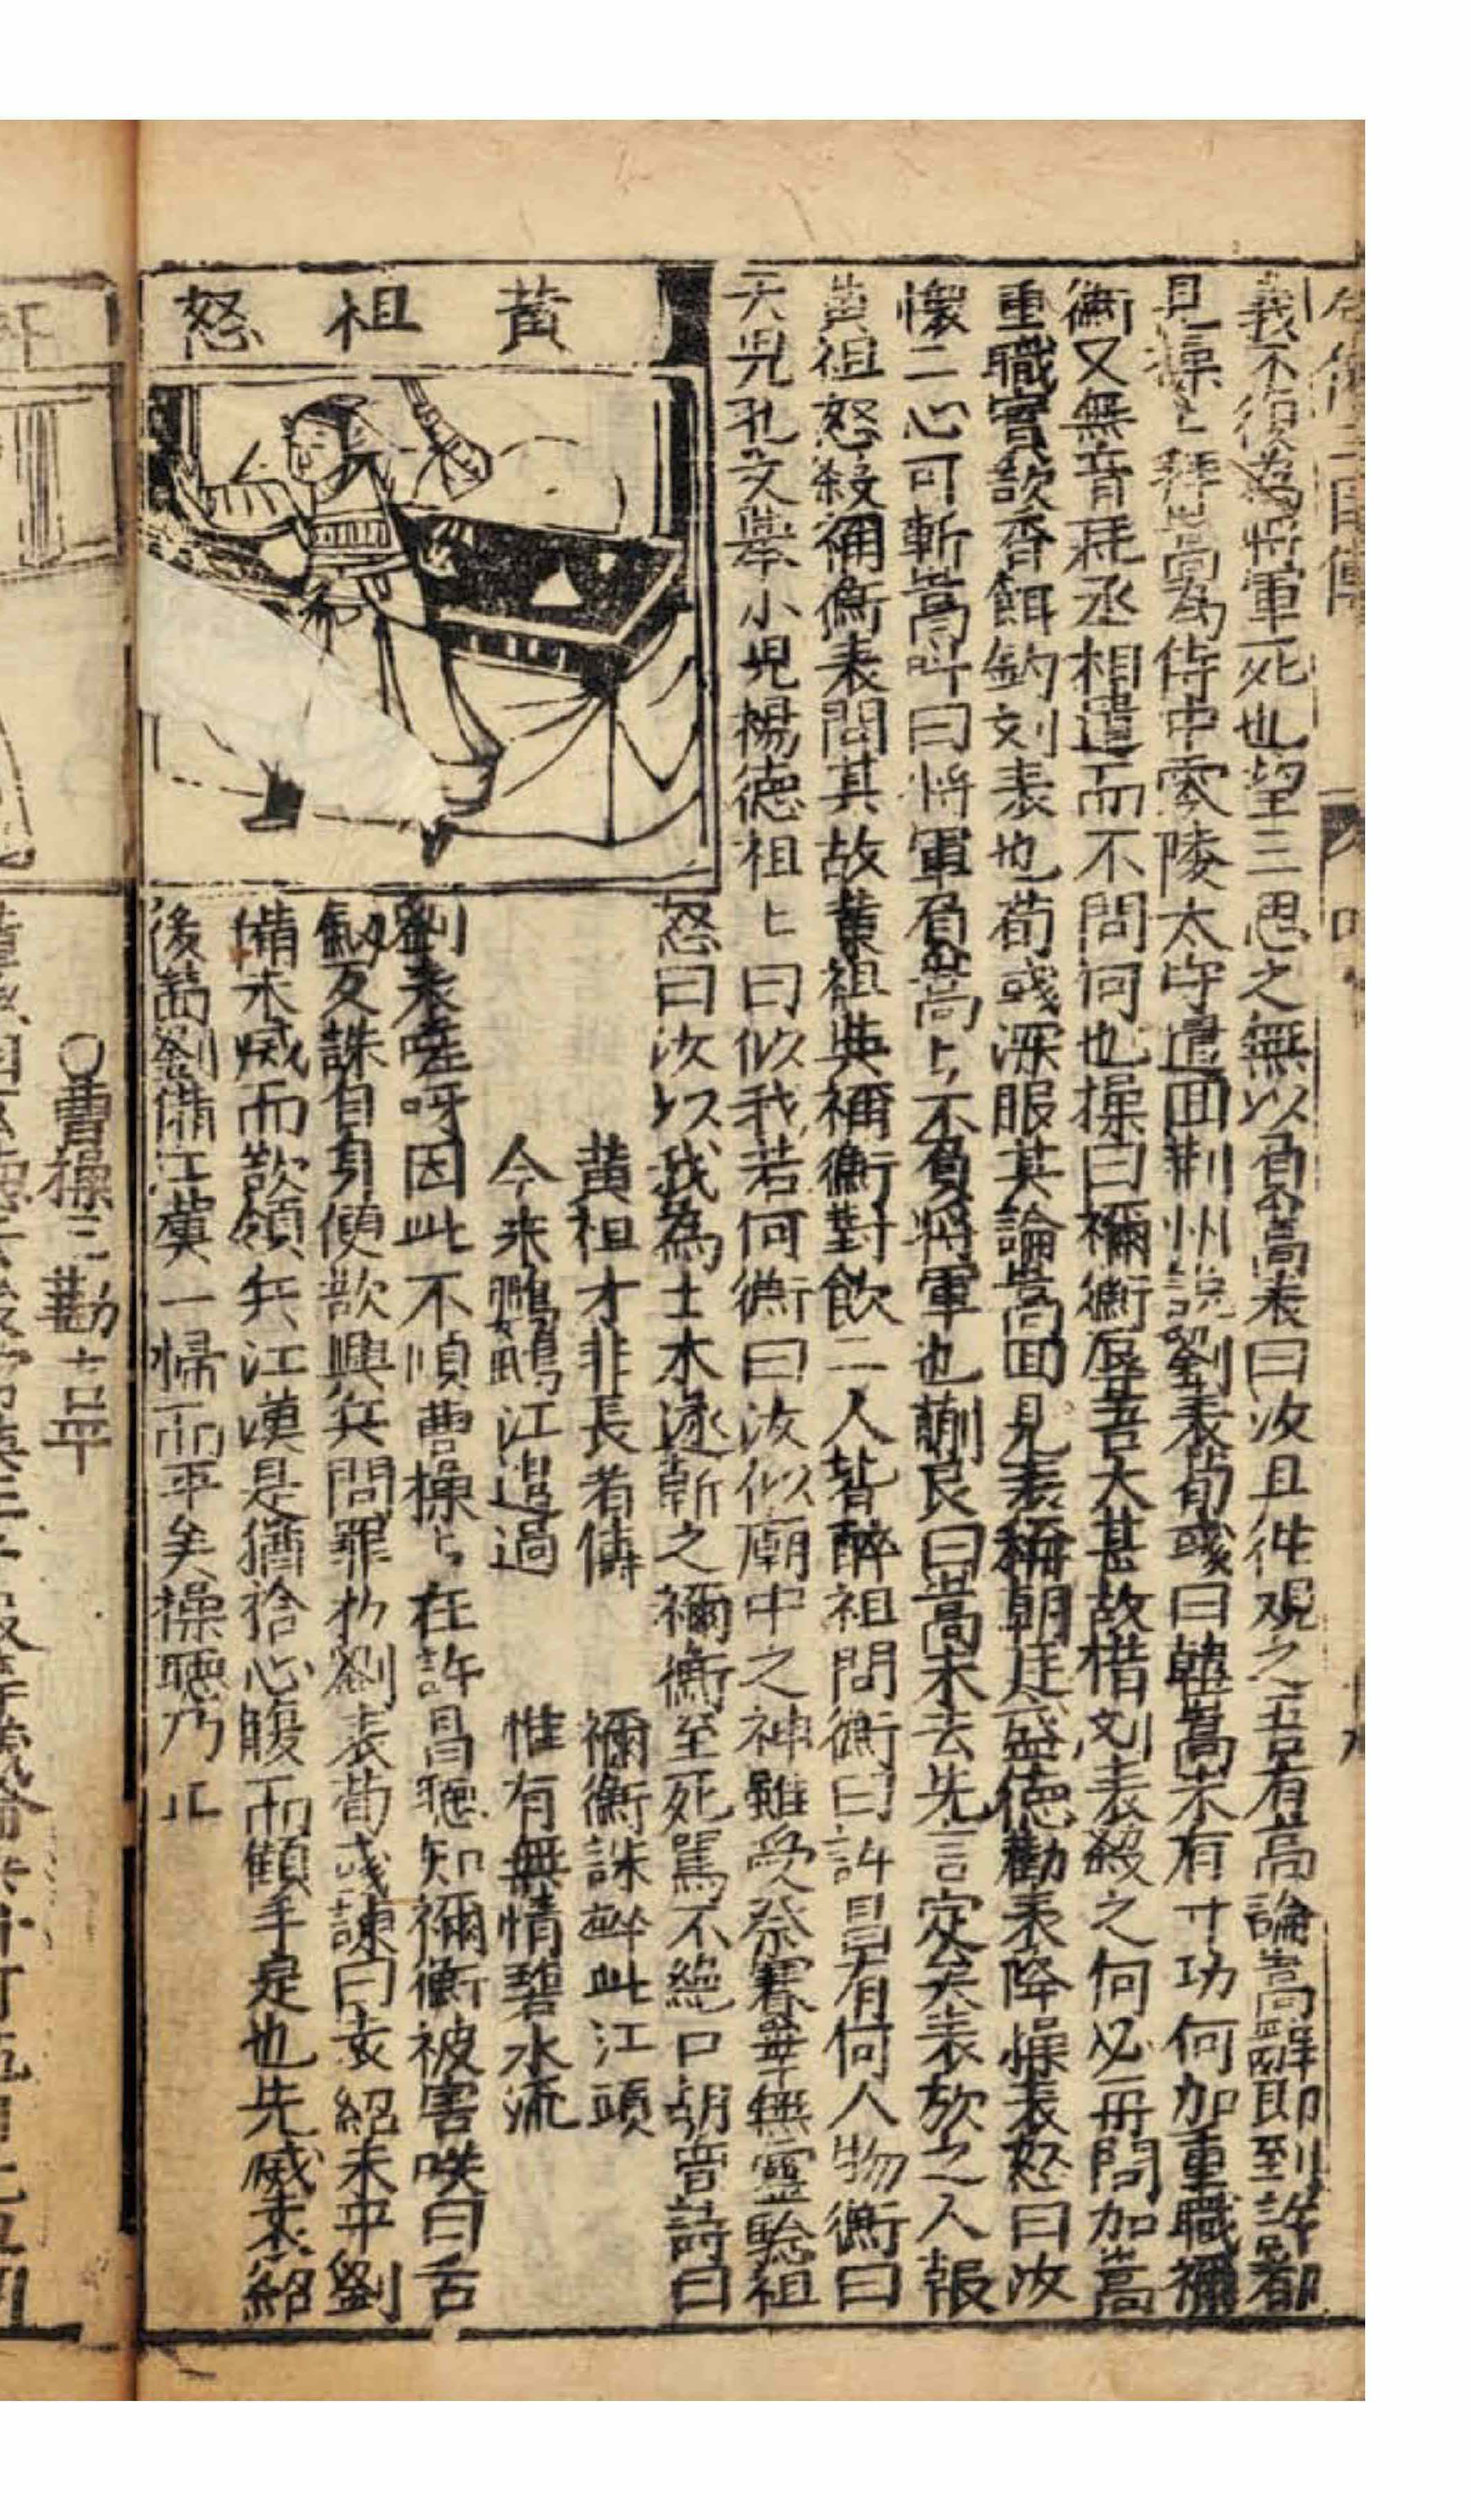 義不復為將軍死也望三思之無以負嵩表曰汝且徃觀之吾有高論嵩辭即到許都
見操上拜嵩為侍中零陵太守遣囬荆州說劉表荀彧曰韓嵩未有寸功何加重職禰
衡又無音耗丞相遣而不問何也操曰禰衡辱吾太甚故借刘表殺之何必再問加嵩
重職實欲香餌釣刘表也荀彧深服其論嵩囬見表称朝廷盛德勸表降操表怒曰汝
懷二心可斬嵩呌曰將軍負嵩上不負將軍也蒯良曰嵩未去先言定矣表放之人報
黄祖怒殺禰衡表問其故黄祖與禰衡對飲二人皆醉祖問衡曰許昌有何人物衡曰
大児孔文舉小児楊德祖上曰似我若何衡曰汝似廟中之神雖受祭賽畢無靈驗祖
怒曰汝以我為土木遂斬之禰衡至死駡不絕口胡曾詩曰
黄祖才非長者儔 禰衡誅碎此江頭
今来鸚鵡江邉過 惟有無情碧水流
劉表嗟呀因此不順曹操上在許昌聽知禰衡被害咲曰舌
劍反誅自身便欲興兵問罪於劉表荀彧諫曰袁紹未平劉
備未滅而欲領兵江漢是猶捨心腹而顧手足也先滅袁紹
後図劉備江漢一掃而平矣操聽乃止
黄祖怒
○曹操三勘吉平